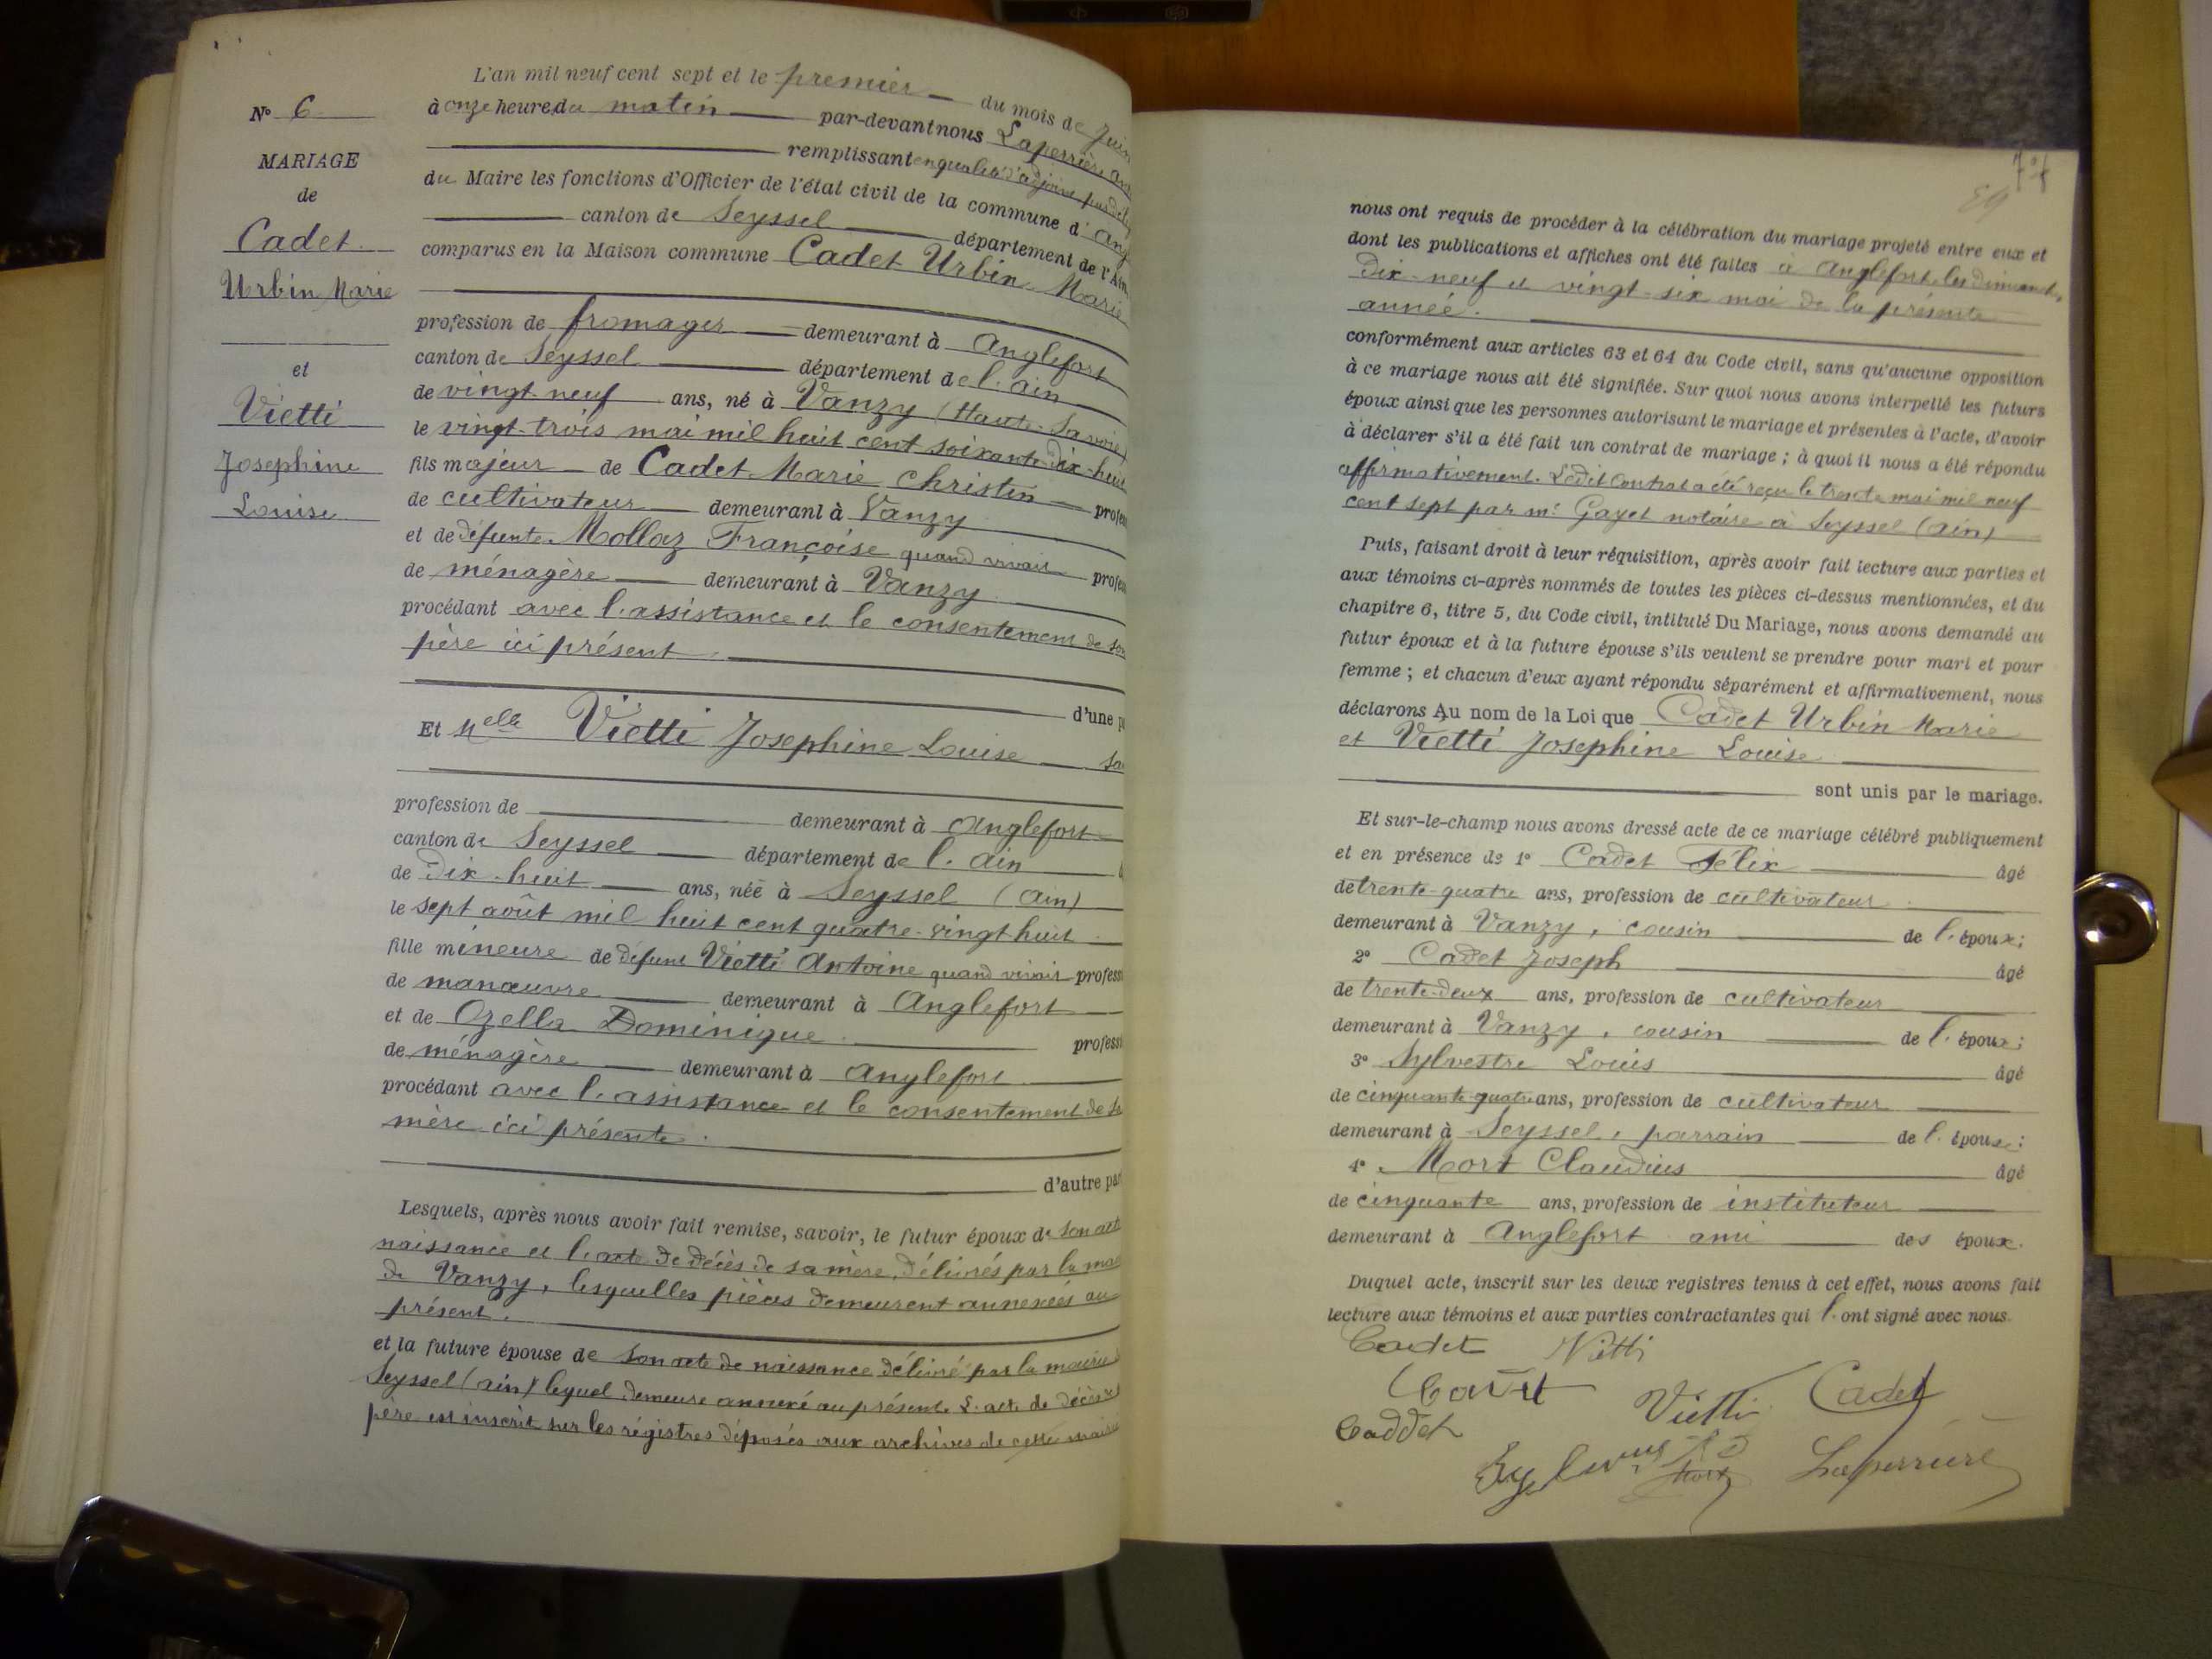 L'an mil neuf cent sept et le premier du mois de Juin
N° 6
à onze heures du matin par-devant nous Laperrière
remplissant en qualité d'adjoint
MARIAGE
du Maire les fonctions d'Officier de l'état civil de la commune d'
de
canton de Seyssel département de l'Ain
Cadet
comparus en la Maison commune Cadet Urbin Marie
Urbin Marie
profession de fromager demeurant à Anglefort
et
canton de Seyssel département de l'ain
Vietti
de vingt-neuf ans, né à Vanzy (Haute-Savoie)
le vingt-trois mai mil huit cent soixante-dix-huit
Josephine
fils majeur de Cadet Marie Christin
Louise
de cultivateur demeurant à Vanzy
et de défunte Mollaz Françoise quand vivait
de ménagère demeurant à Vanzy
procédant avec l'assistance et le consentement de son
père ici présent.
d'une
Et Melle Vietti Josephine Louise
profession de demeurant à Anglefort
canton de Seyssel département de l'ain
de dix-huit ans, née à Seyssel (ain)
le sept août mil huit cent quatre-vingt huit
fille mineure de défunt Vietti Antoine quand vivait
de manœuvre demeurant à Anglefort
et de Ozella Dominique
de ménagère demeurant à Anglefort
procédant avec l'assistance et le consentement de
mère ici présente.
d'autre
Lesquels, après nous avoir fait remise, savoir, le futur époux de son
naissance et l'acte de décès de sa mère, délivrés par la
de Vanzy, lesquelles pièces demeurent annexées au
présent.
et la future épouse de son acte de naissance délivré par la mairie
Seyssel (ain) lequel demeure annexé au présent. L'acte de décès
père est inscrit sur les régistres déposés aux archives de cette mairie
89
nous ont requis de procéder à la célébration du mariage projeté entre eux et
dont les publications et affiches ont été faites à Anglefort les dimanches
dix-neuf et vingt-six mai de la présente
année.
conformément aux articles 63 et 64 du Code civil, sans qu'aucune opposition
à ce mariage nous ait été signifiée. Sur quoi nous avons interpellé les futurs
époux ainsi que les personnes autorisant le mariage et présentes à l'acte, d'avoir
à déclarer s'il a été fait un contrat de mariage ; à quoi il nous a été répondu
affirmativement. Ledit contrat a été reçu le trente mai mil neuf
cent sept par me Gayet notaire à Seyssel (ain)
Puis, faisant droit à leur réquisition, après avoir fait lecture aux parties et
aux témoins ci-après nommés de toutes les pièces ci-dessus mentionnées, et du
chapitre 6, titre 5, du Code civil, intitulé Du Mariage, nous avons demandé au
futur époux et à la future épouse s'ils veulent se prendre pour mari et pour
femme ; et chacun d'eux ayant répondu séparément et affirmativement, nous
déclarons Au nom de la Loi que Cadet Urbin Marie
et Vietti Josephine Louise
sont unis par le mariage.
Et sur-le-champ nous avons dressé acte de ce mariage célébré publiquement
et en présence de 1° Cadet Félix âgé
de trente-quatre ans, profession de cultivateur
demeurant à Vanzy, cousin de l'époux ;
2° Cadet Joseph âgé
de trente-deux ans, profession de cultivateur
demeurant à Vanzy, cousin de l'époux ;
3° Sylvestre Louis âgé
de cinquante-quatre ans, profession de cultivateur
demeurant à Seyssel, parrain de l'épouse ;
4° Mort Claudius âgé
de cinquante ans, profession de instituteur
demeurant à Anglefort ami des époux.
Duquel acte, inscrit sur les deux registres tenus à cet effet, nous avons fait
lecture aux témoins et aux parties contractantes qui l'ont signé avec nous.
Cadet Vietti
Vietti Cadet
Caddet
Mort Laperrière